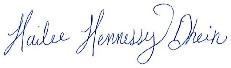 Hailee Hennessy Dhein